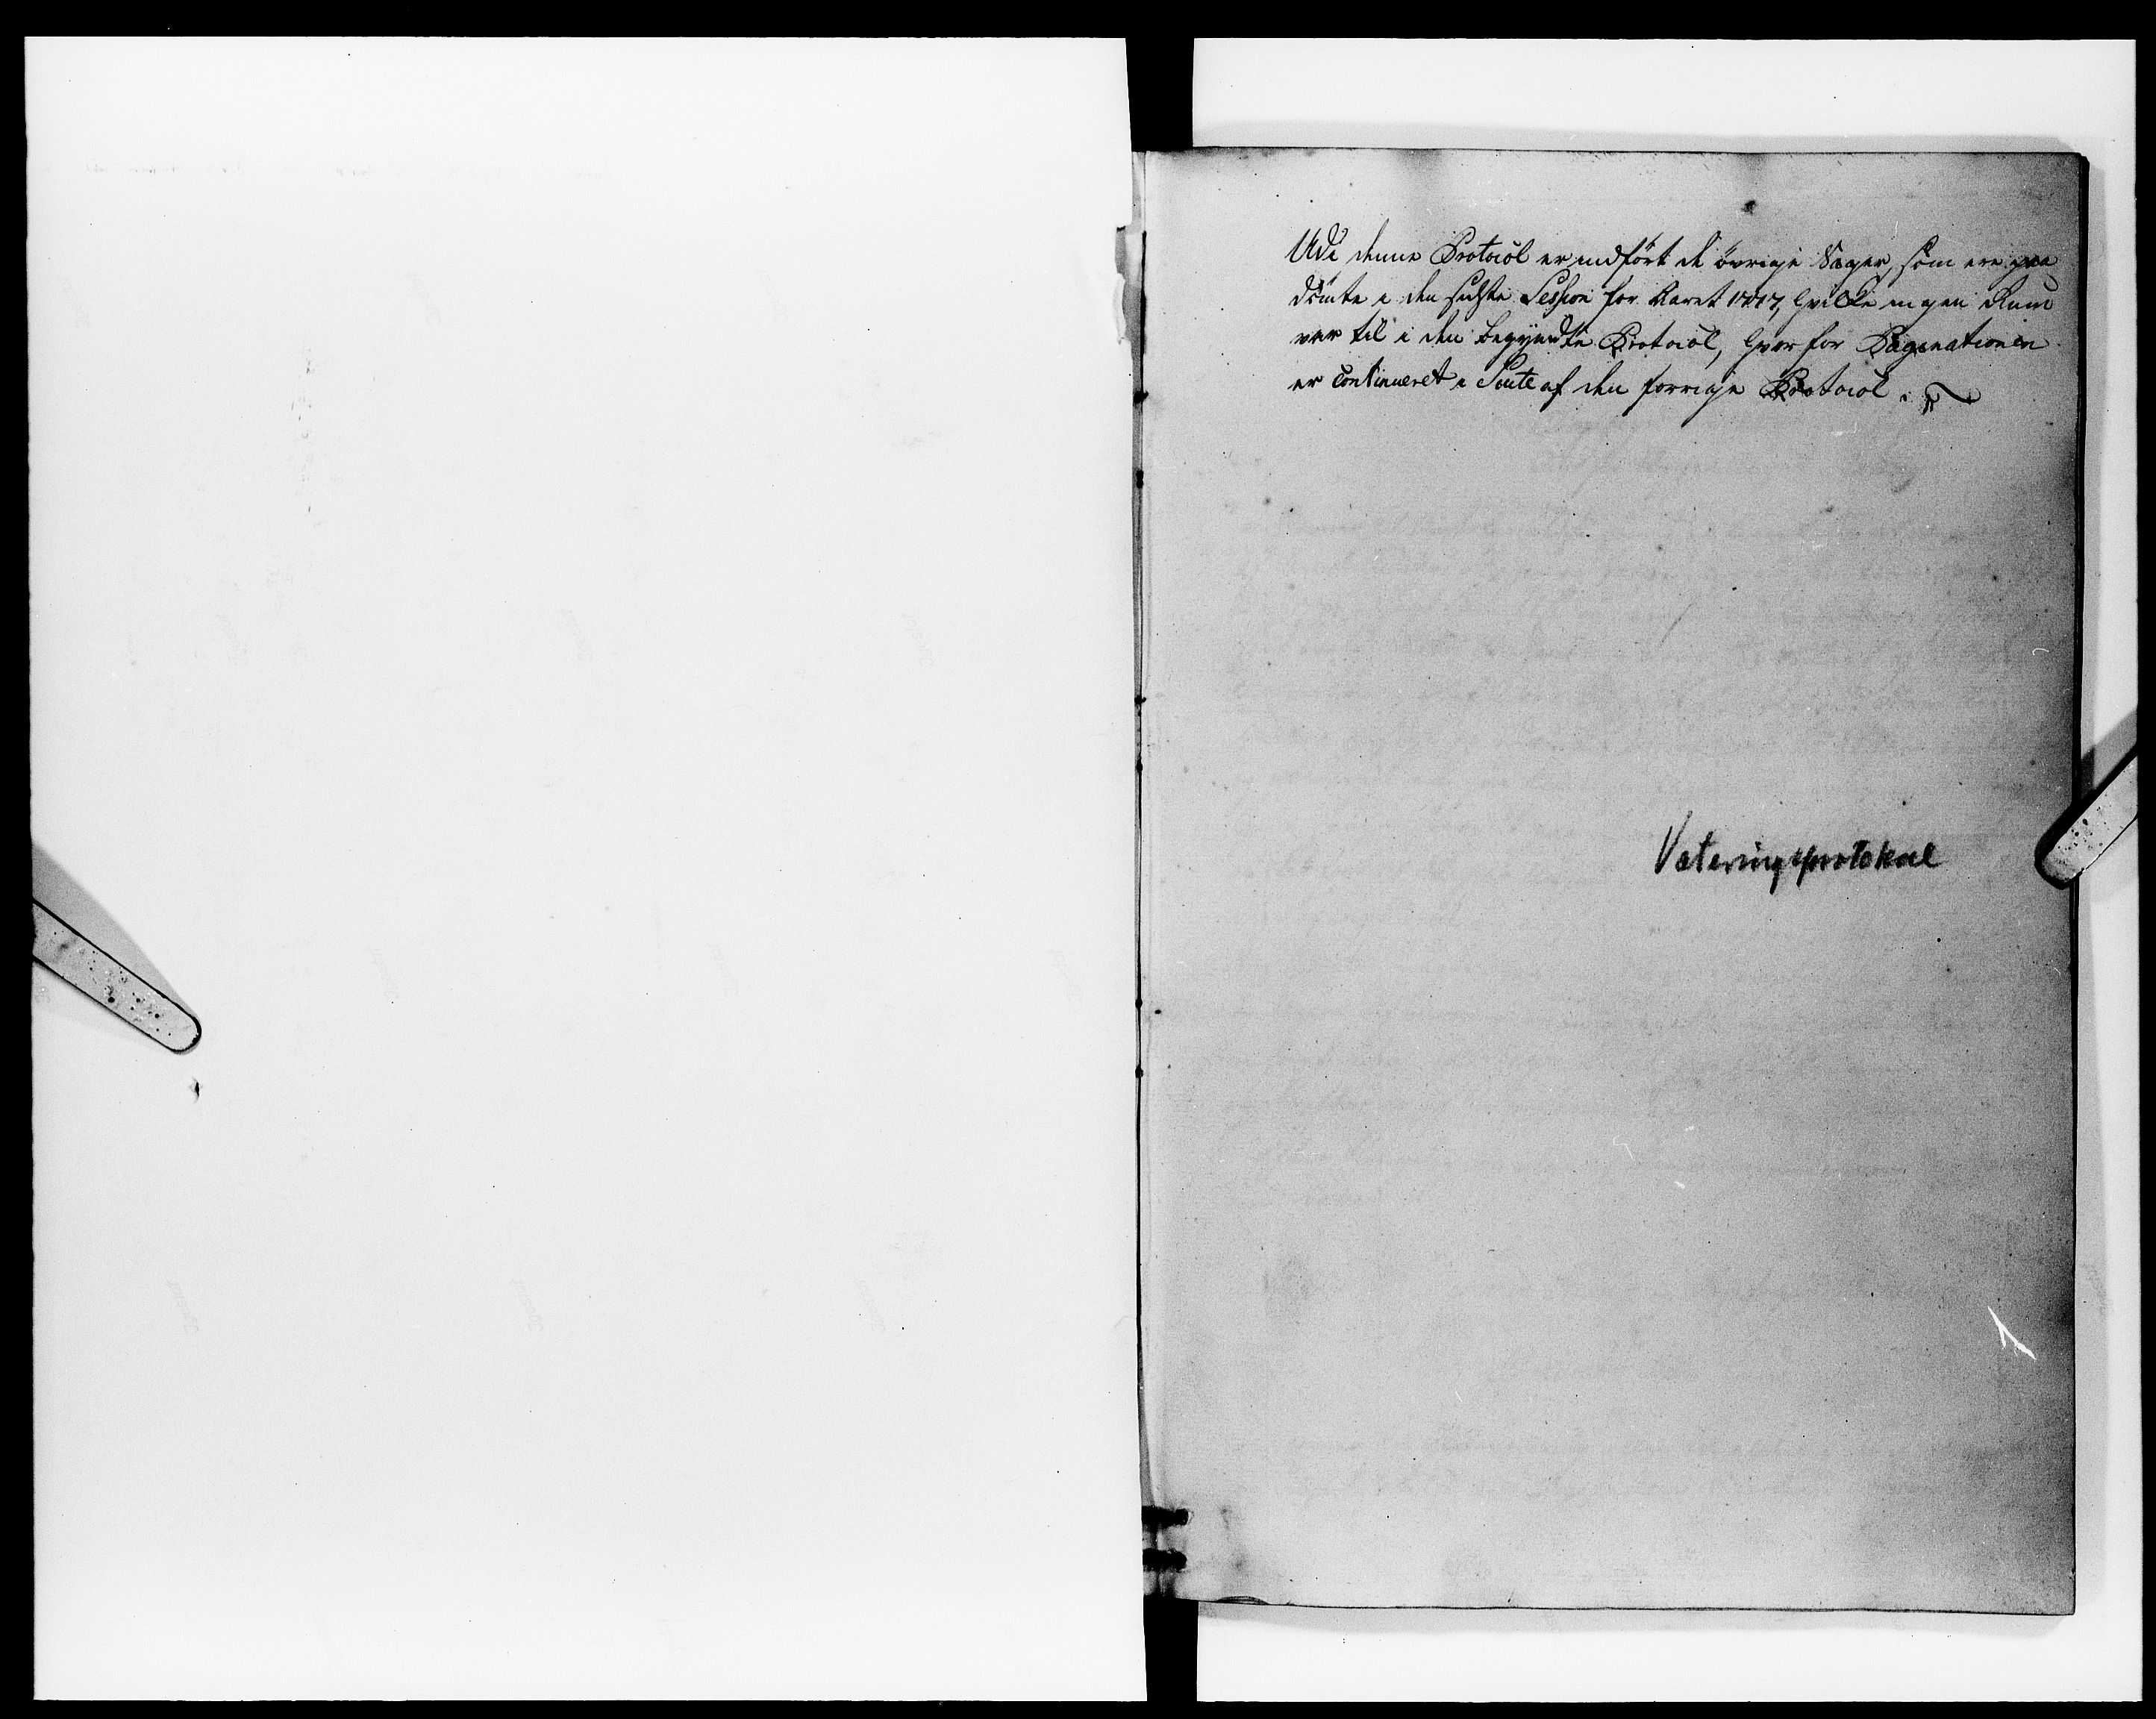 Udi denne Protocol er indført de øvrige Sager, som ere paa
dømte i den sidste Session for Aaret 1717, hvilke ingen Rum
var til i den begyndte Protocol, hvor for Paginationen
er Continueret i Suite af den forrige Protocol.
Voteringsprotokol